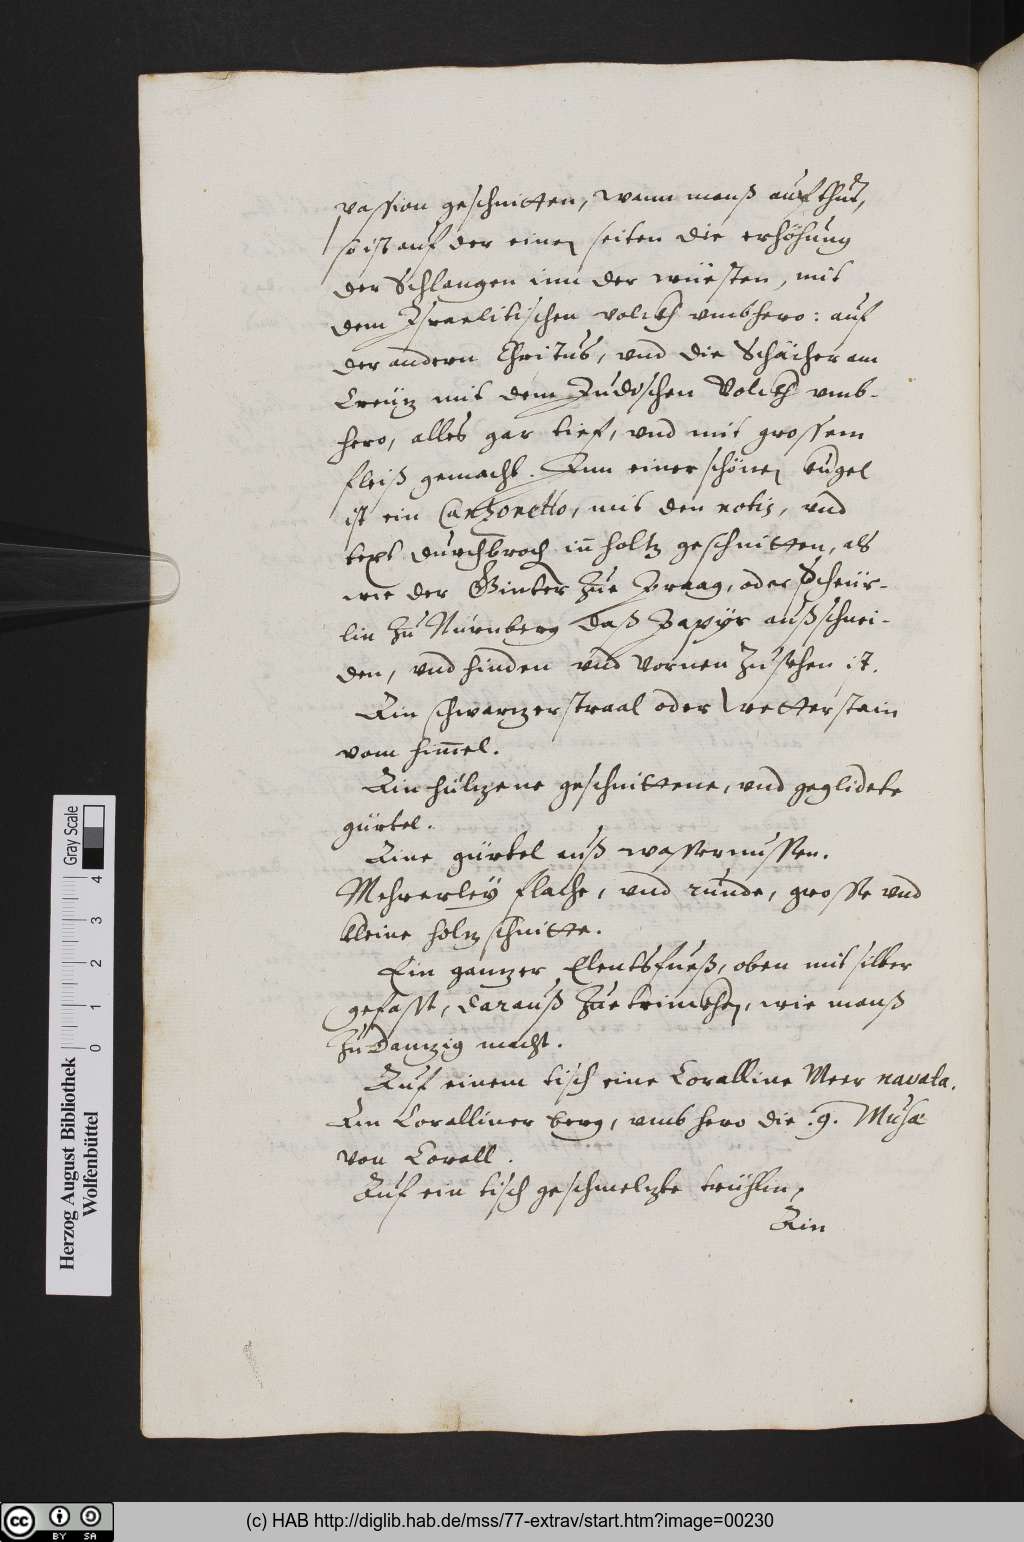 passion geschnitten, wann manß aufthut,
so ist auf der einen seiten die erhöhung
der Schlangen inn der wüesten, mit
dem Israelitischen volckh vmbhero: auf
der andern Christus, vnd die Schächer am
Creütz mit dem Judischen Volckh vmb-
hero, alles gar tief, vnd mit grossem
fleiß gemacht. Inn einer schönen kugel
ist ein Canzonetto, mit den notis, vnd
text durchbroch in̄ holtz geschnitten, als
wie der Ginter zue Praag, oder Scheür-
lin zu Nürnberg daß Papyr außschnei-
den, vnd hinden vnd vornen zu sehen ist.
Ein schwartzer straal oder wetterstain
vom him̄el.
Ein hültzene geschnittene, vnd geglidete
gürtel.
Eine gürtel auß wassernussen.
Mehrerley flache, vnd runde, grosse vnd
kleine holtzschnitte.
Ein gantzer Elendsfueß, oben mit silber
gefasst, darauß zue trinckhen, wie manß
zu Dantzig macht.
Auf einem tisch eine Coralline Meer navata.
Ein Coralliner berg, vmbhero die .9. Musæ
von Corall.
Auf ein tisch geschmeltzte trühlin,
Ein
Gray Scale
0 1 2 3 4
Herzog August Bibliothek
Wolfenbüttel
cc BY SA
(c) HAB http://diglib.hab.de/mss/77-extrav/start.htm?image=00230